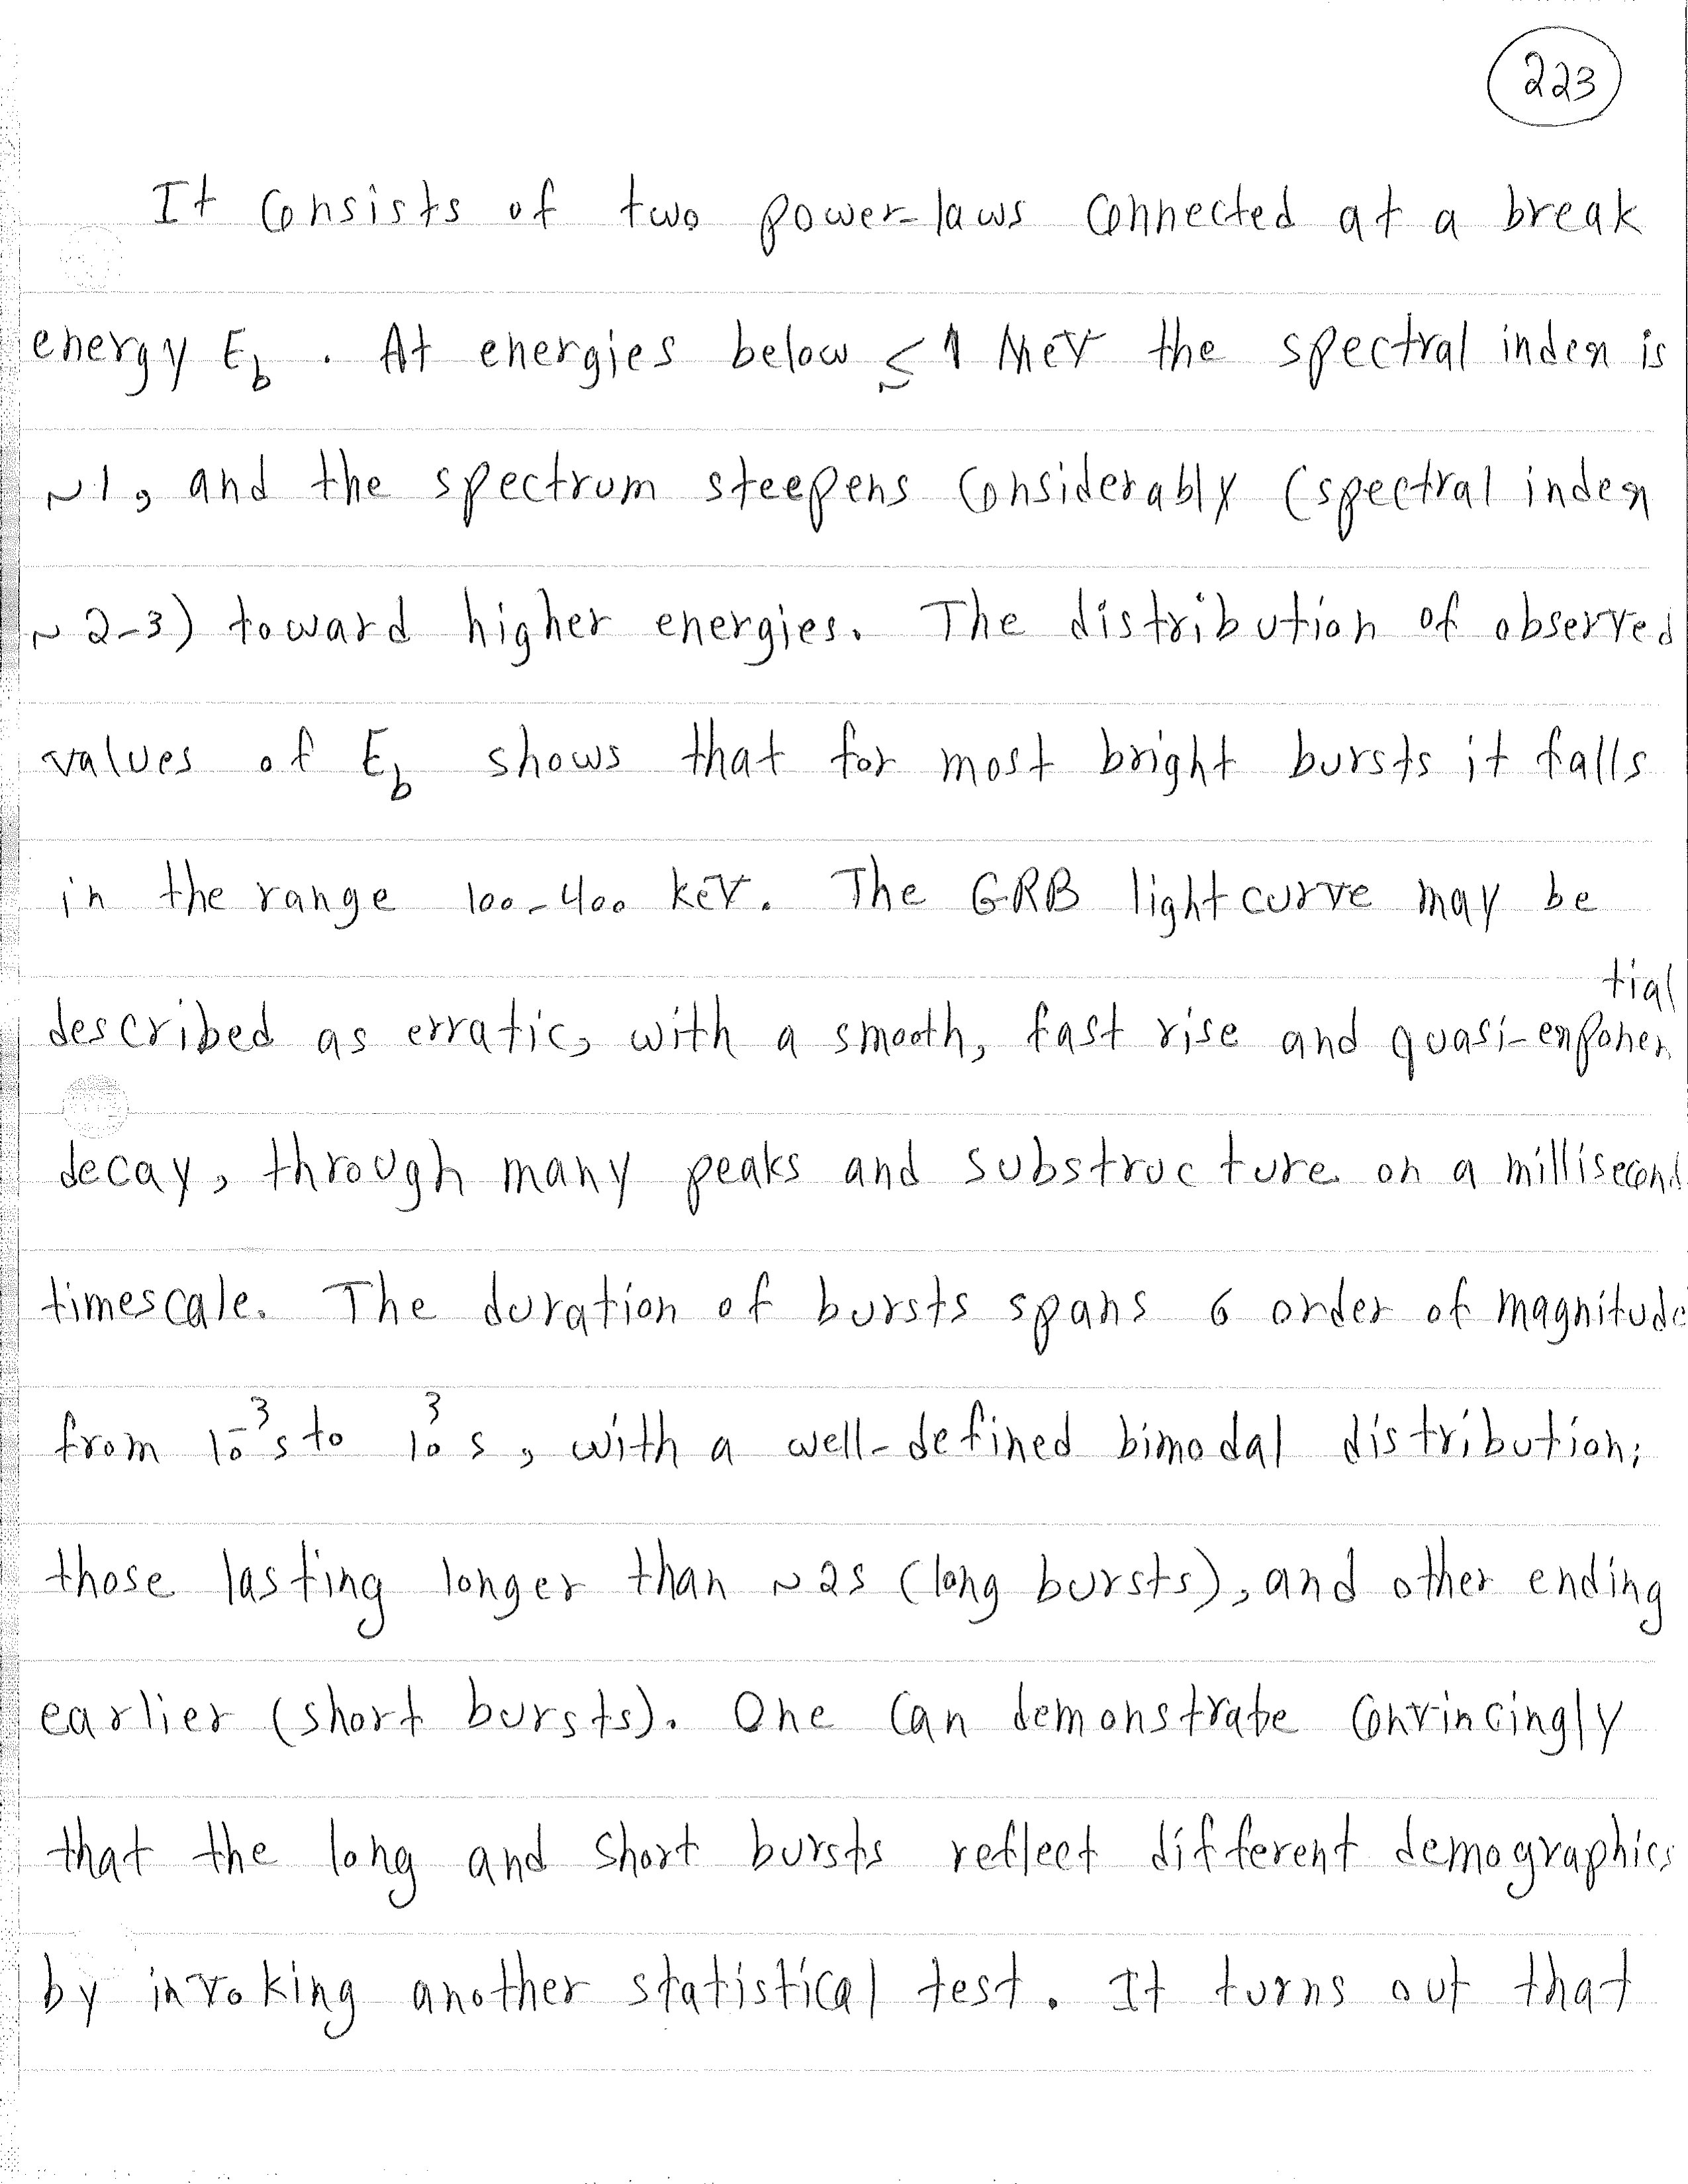 223
It consists of two power-laws connected at a break
energy E_b. At energies below ≲ 1 MeV the spectral index is
~1, and the spectrum steepens considerably (spectral index
~2-3) toward higher energies. The distribution of observed
values of E_b shows that for most bright bursts it falls
in the range 100-400 keV. The GRB lightcurve may be
described as erratic, with a smooth, fast rise and quasi-exponential
decay, through many peaks and substructure on a millisecond
timescale. The duration of bursts spans 6 order of magnitude
from 10^-3 s to 10^3 s, with a well-defined bimodal distribution;
those lasting longer than ~2s (long bursts), and other ending
earlier (short bursts). One can demonstrate convincingly
that the long and short bursts reflect different demographics
by invoking another statistical test. It turns out that